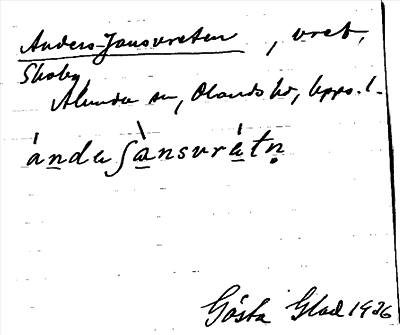 Anders-Jansvreten, vret,
Skoby
Alunda sn, Olands hd, Upps. l.
àndaʃànsvrétn̥
Gösta Glad 1936